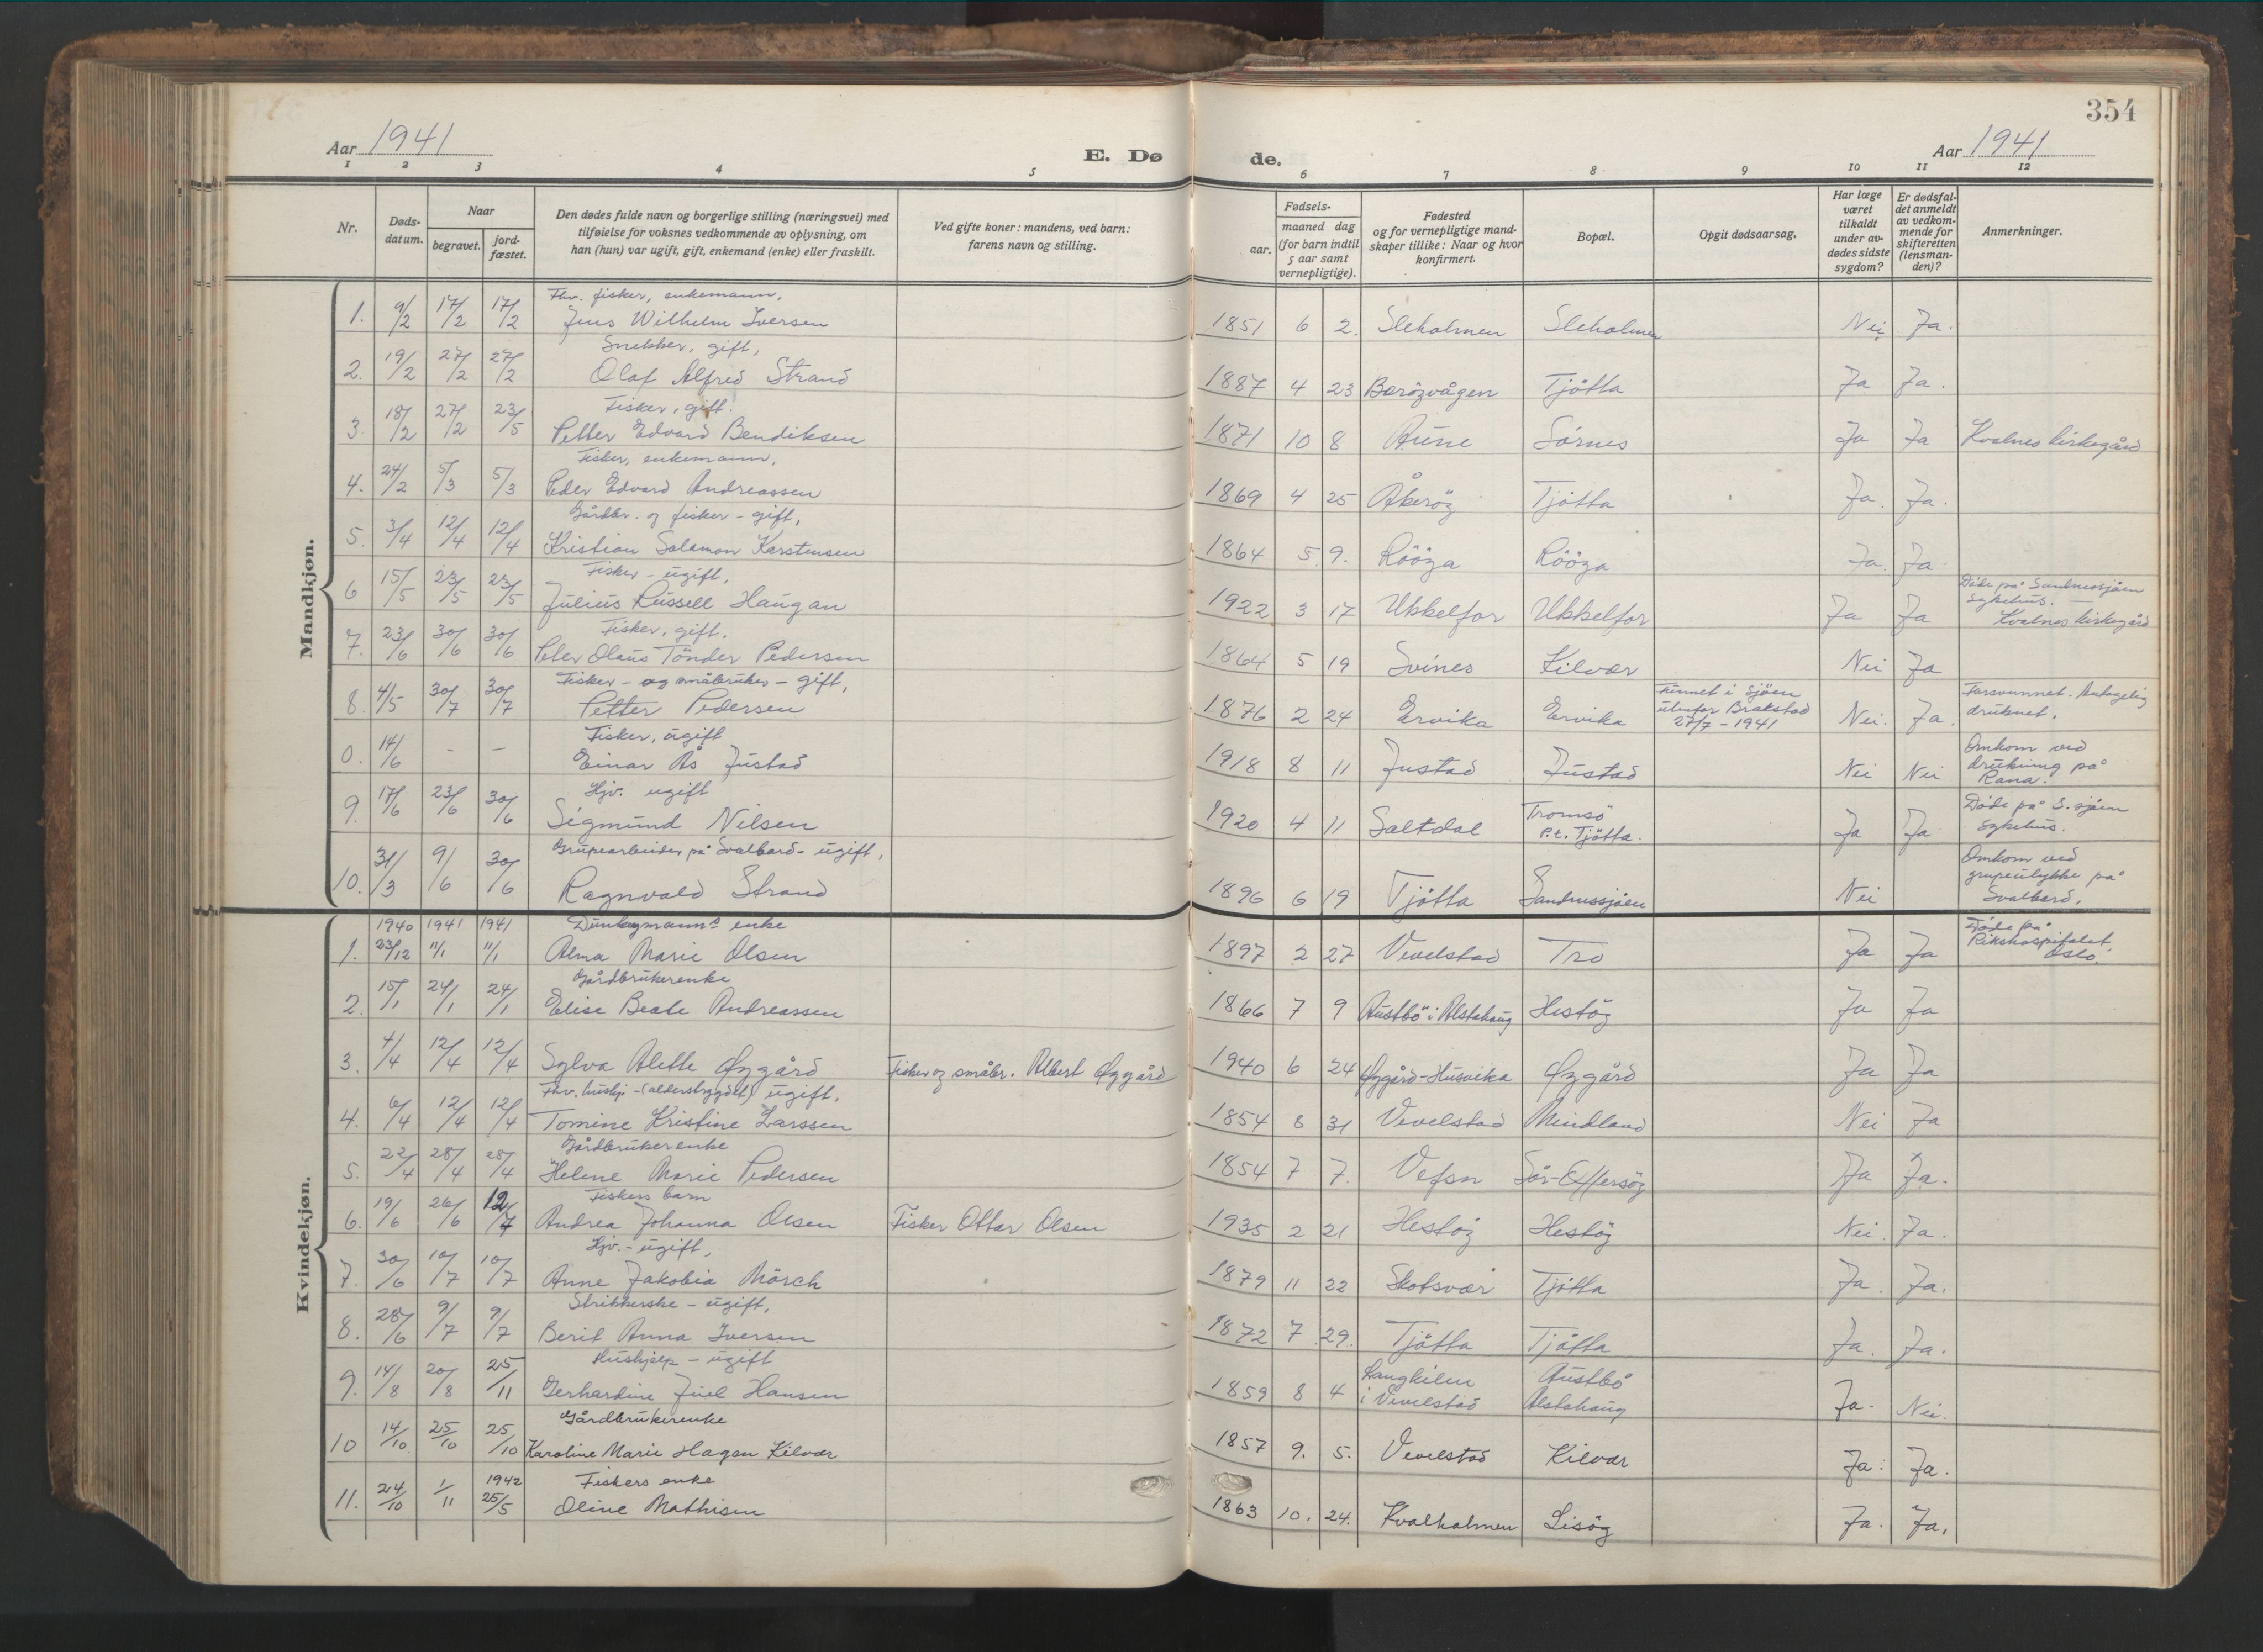 354
Aar 1941
E. Dø
de.
Aar 1941
1 2 3 4 5 6 7 8 9 10 11 12
Nr.
Døds-
datum.
Naar
begravet.
jord-
fæstet.
Den dødes fulde navn og borgerlige stilling (næringsvei) med
tilføielse for voksnes vedkommende av oplysning, om
han (hun) var ugift, gift, enkemand (enke) eller fraskilt.
Ved gifte koner: mandens, ved barn:
farens navn og stilling.
Fødsels-
aar.
maaned dag
(for barn indtil
5 aar samt
vernepligtige).
Fødested
og for vernepligtige mand-
skaper tillike: Naar og hvor
konfirmert.
Bopæl.
Opgit dødsaarsag.
Har læge
været
tilkaldt
under av-
dødes sidste
sygdom?
Er dødsfal-
det anmeldt
av vedkom-
mende for
skifteretten
(lensman-
den)?
Anmerkninger.
Mandkjøn.
Fhv. fisker, enkemann,
1. 9/2 17/2 17/2 Jens Wilhelm Iversen 1851 6 2. Sleholmen Sleholmen Nei Ja.
Snekker, gift,
2. 19/2 27/2 27/2 Olaf Alfred Strand 1887 4 23 Barøyvågen Tjötta Ja Ja.
Fisker, gift.
3. 18/2 27/2 23/5 Petter Edvard Bendiksen 1871 10 8 Aune Sörnes Ja Ja Kvalnes kirkegård
Fisker, enkemann,
4. 24/2 5/3 5/3 Peder Edvard Andreassen 1869 4 25 Åkeröy Tjötta Ja. Ja.
Gårdbr. og fisker - gift,
5. 3/4 12/4 12/4 Kristian Salamon Karstensen 1864 5 9. Rööya Rööya Ja. Ja
Fisker - ugift,
6 15/5 23/5 23/5 Julius Russell Haugan 1922 3 17 Ukkelfor Ukkelfor Ja Ja Döde på Sandnessjöen
sykehus. —
Kvalnes kirkegård
Fisker, gift.
7. 23/6 30/6 30/6 Peter Olaus Tönder Pedersen 1864 5 19 Svines Kilvær Nei Ja
Fisker - og småbruker - gift,
8. 4/5 30/7 30/7 Petter Pedersen 1876 2 24 Ervika Ervika Funnet i sjöen
utenfor Brakstad
27/7 - 1941 Nei. Ja. Forsvunnet. Antagelig
druknet.
Fisker, ugift
0. 14/6 - - Einar Ås Justad 1918 8 11 Justad Justad Nei Nei Omkom ved
drukning på
Rana.
Hjv. ugift
9. 17/6 23/6 30/6 Sigmund Nilsen 1920 4 11 Saltdal Tromsö
P.t. Tjötta. Ja Ja Döde på S.sjöen
sykehus.
Grupearbeider på Svalbard - ugift,
10. 31/3 9/6 30/6 Ragnvald Strand 1896 6 19 Tjötta Sandnessjöen Nei Omkom ved
grupeulykke på
Svalbard.
Kvindekjøn.
1940 1941 1941
1. 23/12 11/1 11/1 Alma Marie Olsen 1897 2 27 Vevelstad Tro Ja Ja Döde på
Rikshospitalet,
Oslo.
Gårdbrukerenke
2. 15/1 24/1 24/1 Elise Beate Andreassen 1866 7 9 Austbö i Alstahaug Hestöy Ja Ja
3. 4/4 12/4 12/4 Sylva Alette Øygård Fisker og småbr. Albert Øygård 1940 6 24 Øygård-Husvika Øygård Ja Ja
Fhv. hushj. - (alderstrygdet) ugift.
4. 6/4 12/4 12/4 Tomine Kristine Larssen 1854 8 31 Vevelstad Mindland Nei Ja
Gårdbrukerenke
5. 22/4 28/4 28/4 Helene Marie Pedersen 1854 7 7. Vefsn Sör-Offersöy Ja Ja.
Fiskers barn
6. 19/6 26/6 12/7 Andrea Johanna Olsen Fisker Ottar Olsen 1935 2 21 Hestöy Hestöy Nei. Ja.
Hjv. - ugift,
7. 30/6 10/7 10/7 Anne Jakobia Mörch 1879 11 22 Skotsvær Tjötta Ja. Ja.
Strikkerske - ugift,
8. 28/6 9/7 9/7 Berit Anna Iversen 1872 7 29. Tjötta Tjötta Ja. Ja.
Hushjelp - ugift
9. 14/8 20/8 25/11 Gerhardine Juel Hansen 1859 8 4 Langkilen
i Vevelstad Austbö
Alstahaug Ja. Nei.
Gårdbrukerenke
10 14/10 25/10 25/10 Karoline Marie Hagen Kilvær 1857 9. 5. Vevelstad Kilvær Ja. Ja.
1942 Fiskers enke
11. 24/10 1/11 25/5 Oline Mathisen 1863 10. 24. Kvalholmen Lisöy Ja. Ja.